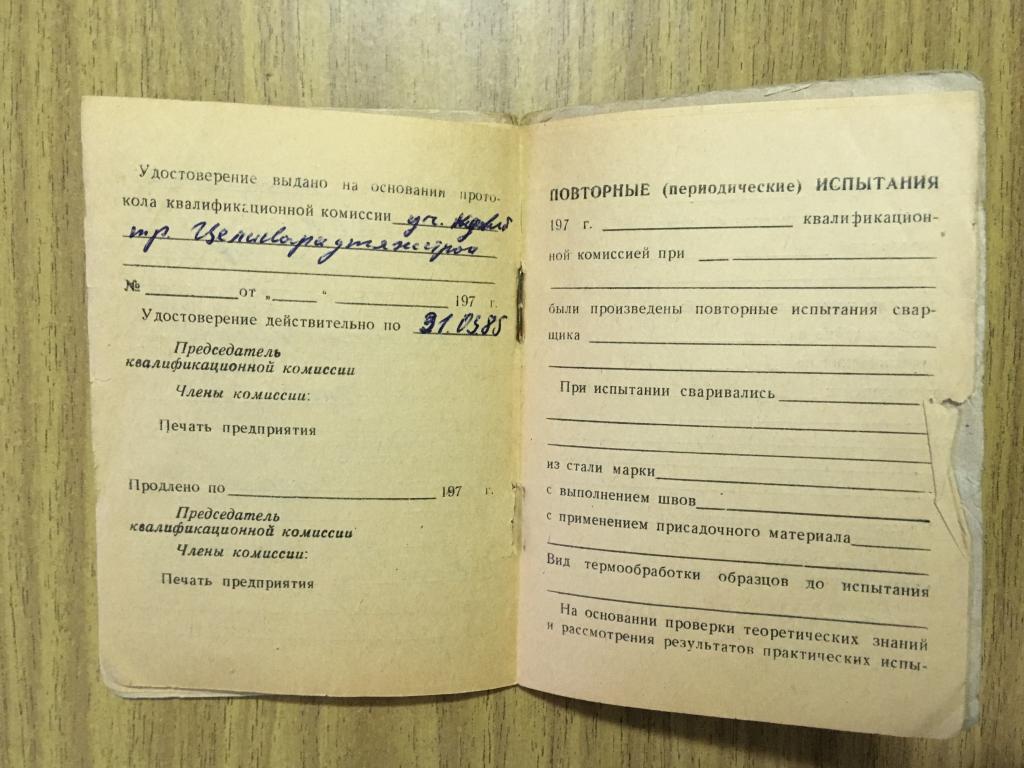 Удостоверение выдано на основании прото-
кола квалификационной комиссии уч.
тр. Целиноградтяжстрой
№ от „ “ 197 г.
Удостоверение действительно по 31.03.85
Председатель
квалификационной комиссии
Члены комиссии:
Печать предприятия
Продлено по 197 г.
Председатель
квалификационной комиссии
Члены комиссии:
Печать предприятия
ПОВТОРНЫЕ (периодические) ИСПЫТАНИЯ
197 г. квалификацион-
ной комиссией при
были произведены повторные испытания свар-
щика
При испытании сваривались
из стали марки
с выполнением швов
с применением присадочного материала
Вид термообработки образцов до испытания
На основании проверки теоретических знаний
и рассмотрения результатов практических испы-